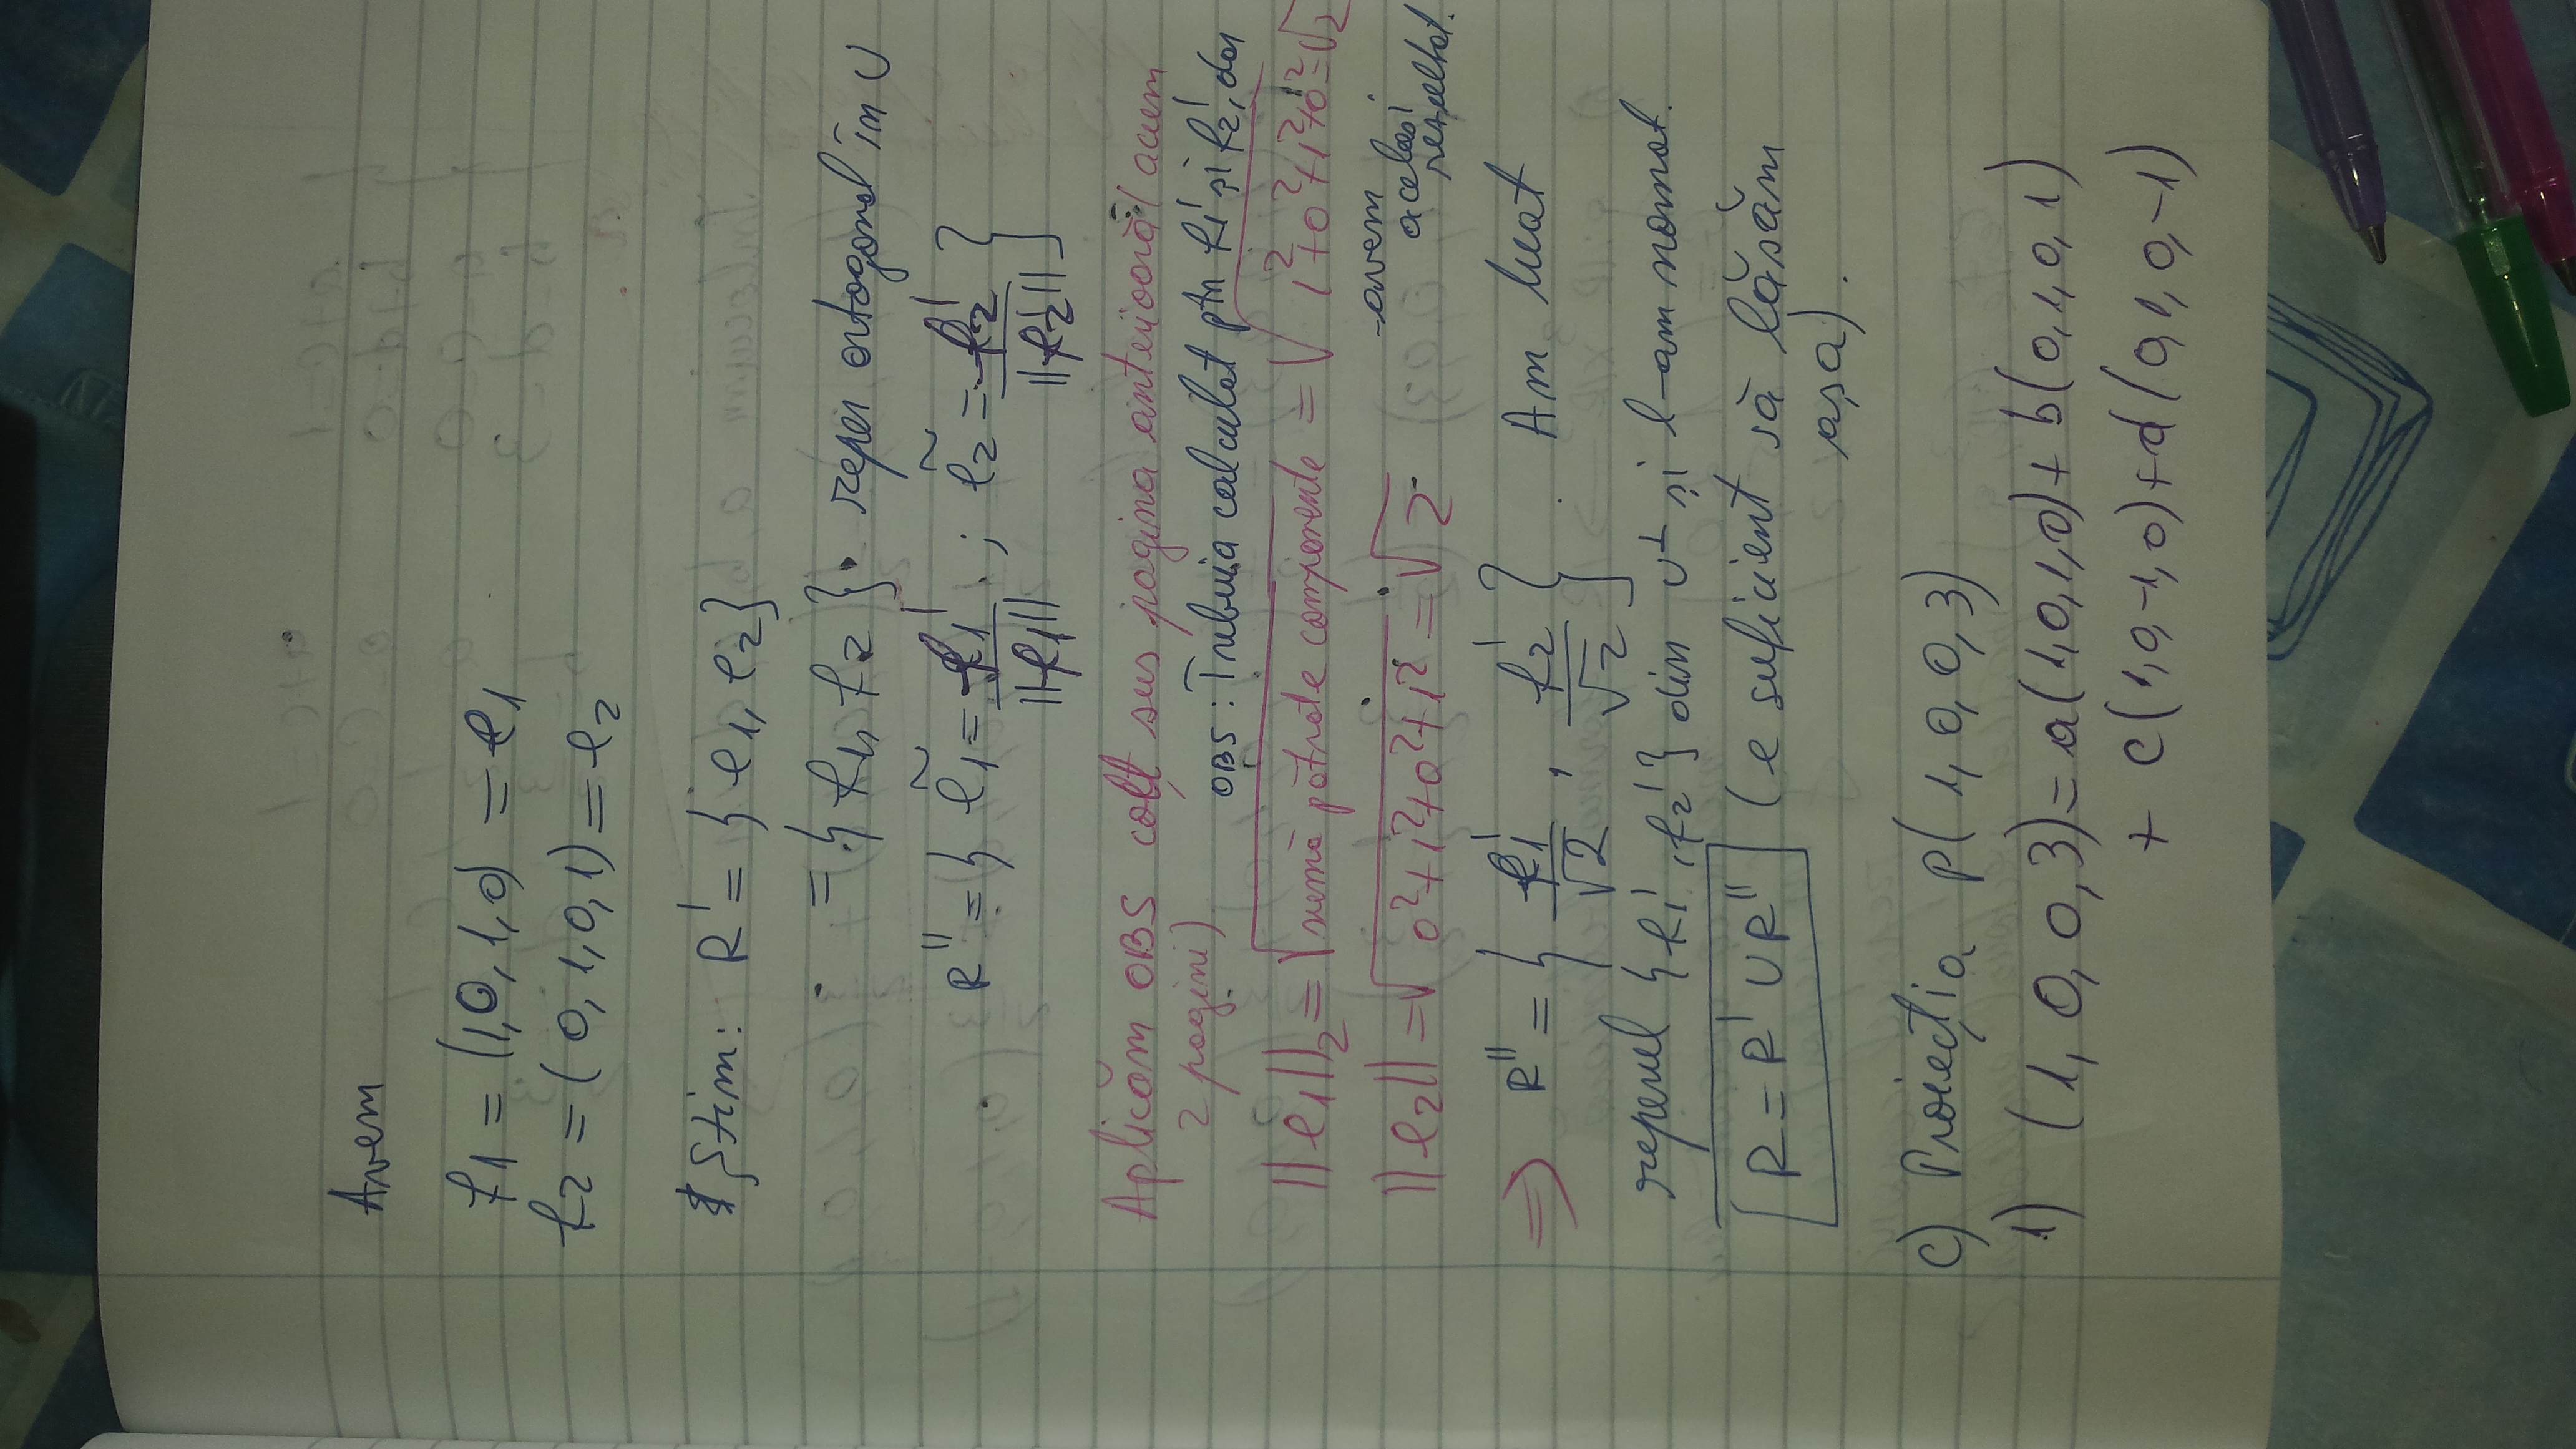 Avem
f1 = (1,0,1,0) = e1
f2 = (0,1,0,1) = e2
Știm: R' = {e1, e2}
= {f1, f2} reper ortogonal în U
R'' = { ẽ1 = f1' / ||f1'|| ; ẽ2 = f2' / ||f2'|| }
Aplicăm OBS colț sus pagina anterioară (acum
2 pagini)
OBS: Trebuia calculat ptr f1' și f2', dar
||e1||2 = √sumă pătrate componente = √1²+0²+1²+0² = √2
||e2|| = √0²+1²+0²+1² = √2
-avem
același
rezultat.
=> R'' = { f1'/√2 , f2'/√2 }. Am luat
reperul {f1', f2'} din U⊥ și l-am normat.
R = R' ∪ R'' (e suficient să lăsăm
așa).
c) Proiecția p(1, 0, 0, 3)
1) (1, 0, 0, 3) = a(1,0,1,0) + b(0,1,0,1)
+ c(1,0,-1,0) + d(0,1,0,-1)